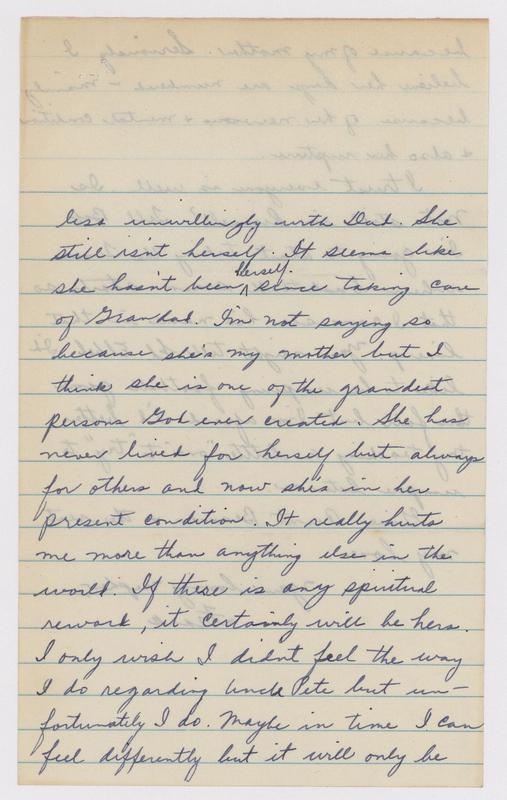 less unwillingly with Dad. She
still isn't herself. It seems like
she hasn't been herself. since taking care
of Grandad. I'm not saying so
because she's my mother but I
think she is one of the grandest
persons God ever created. She has
never lived for herself but always
for others and now she's in her
present condition. It really hurts
me more than anything else in the
world. If there is any spiritual
reward, it certainly will be hers.
I only wish I didn't feel the way
I do regarding Uncle Pete but un-
fortunately I do. Maybe in time I can
feel differently but it will only be